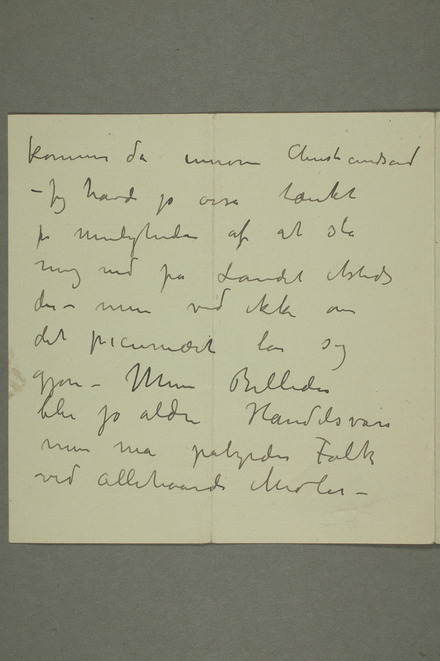 kommer da innom Christiandsand
– Jeg havde jo osså tænkt
på muligheden af at slå
mig ned på Landet etsteds
der – men ved ikke om
det pecuniært lar sig
gjøre – Mine Billeder
blir jo aldri Handelsvare
men må pånødes Folk
ved allehaande Midler –